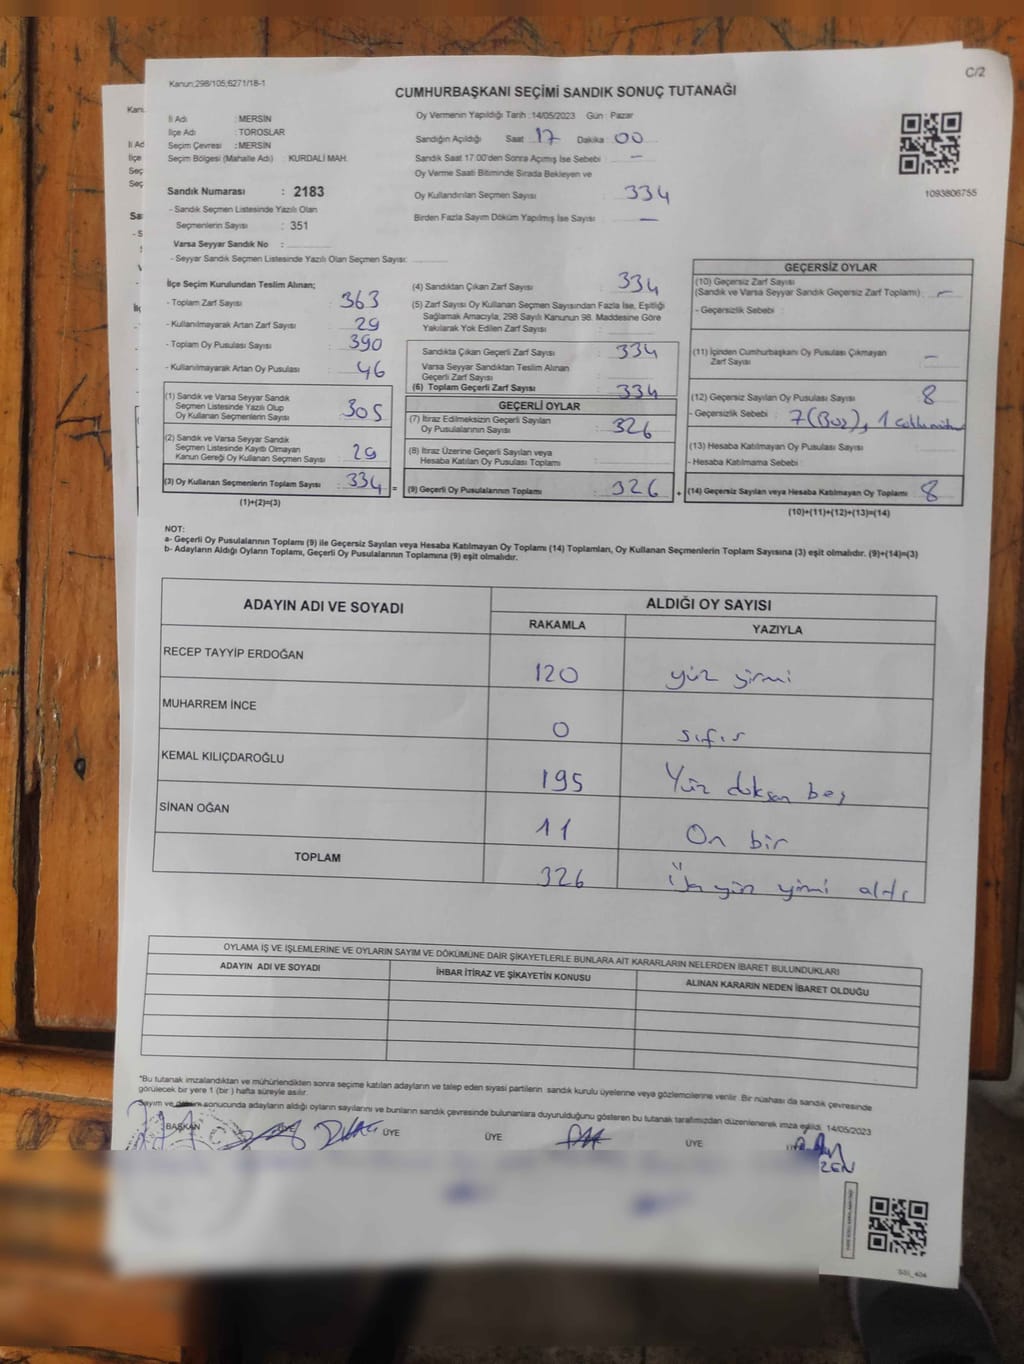 Kanun;298/105;6271/18-1
C/2
CUMHURBAŞKANI SEÇİMİ SANDIK SONUÇ TUTANAĞI
İl Adı : MERSİN
İlçe Adı : TOROSLAR
Seçim Çevresi : MERSİN
Seçim Bölgesi (Mahalle Adı) : KURDALİ MAH.
Sandık Numarası : 2183
- Sandık Seçmen Listesinde Yazılı Olan
Seçmenlerin Sayısı : 351
Varsa Seyyar Sandık No :
- Seyyar Sandık Seçmen Listesinde Yazılı Olan Seçmen Sayısı:
Oy Vermenin Yapıldığı Tarih :14/05/2023 Gün : Pazar
Sandığın Açıldığı Saat 17 Dakika : 00
Sandık Saat 17.00'den Sonra Açımış İse Sebebi : -
Oy Verme Saati Bitiminde Sırada Bekleyen ve
Oy Kullandırılan Seçmen Sayısı : 334
Birden Fazla Sayım Döküm Yapılmış İse Sayısı : -
1093806755
İlçe Seçim Kurulundan Teslim Alınan;
- Toplam Zarf Sayısı : 363
- Kullanılmayarak Artan Zarf Sayısı : 29
- Toplam Oy Pusulası Sayısı : 390
- Kullanılmayarak Artan Oy Pusulası : 46
(1) Sandık ve Varsa Seyyar Sandık
Seçmen Listesinde Yazılı Olup
Oy Kullanan Seçmenlerin Sayısı : 305
(2) Sandık ve Varsa Seyyar Sandık
Seçmen Listesinde Kayıtlı Olmayan
Kanun Gereği Oy Kullanan Seçmen Sayısı : 29
(3) Oy Kullanan Seçmenlerin Toplam Sayısı : 334 =
(1)+(2)=(3)
(4) Sandıktan Çıkan Zarf Sayısı : 334
(5) Zarf Sayısı Oy Kullanan Seçmen Sayısından Fazla İse, Eşitliği
Sağlamak Amacıyla, 298 Sayılı Kanunun 98. Maddesine Göre
Yakılarak Yok Edilen Zarf Sayısı :
Sandıkta Çıkan Geçerli Zarf Sayısı : 334
Varsa Seyyar Sandıktan Teslim Alınan
Geçerli Zarf Sayısı :
(6) Toplam Geçerli Zarf Sayısı : 334
GEÇERLİ OYLAR
(7) İtiraz Edilmeksizin Geçerli Sayılan
Oy Pusulalarının Sayısı : 326
(8) İtiraz Üzerine Geçerli Sayılan veya
Hesaba Katılan Oy Pusulası Toplamı :
(9) Geçerli Oy Pusulalarının Toplamı : 326 +
GEÇERSİZ OYLAR
(10) Geçersiz Zarf Sayısı
(Sandık ve Varsa Seyyar Sandık Geçersiz Zarf Toplamı) : -
- Geçersizlik Sebebi :
(11) İçinden Cumhurbaşkanı Oy Pusulası Çıkmayan
Zarf Sayısı : -
(12) Geçersiz Sayılan Oy Pusulası Sayısı : 8
- Geçersizlik Sebebi : 7 (Boş), 1
(13) Hesaba Katılmayan Oy Pusulası Sayısı :
- Hesaba Katılmama Sebebi :
(14) Geçersiz Sayılan veya Hesaba Katılmayan Oy Toplamı : 8
(10)+(11)+(12)+(13)=(14)
NOT:
a- Geçerli Oy Pusulalarının Toplamı (9) ile Geçersiz Sayılan veya Hesaba Katılmayan Oy Toplamı (14) Toplamları, Oy Kullanan Seçmenlerin Toplam Sayısına (3) eşit olmalıdır. (9)+(14)=(3)
b- Adayların Aldığı Oyların Toplamı, Geçerli Oy Pusulalarının Toplamına (9) eşit olmalıdır.
ADAYIN ADI VE SOYADI
ALDIĞI OY SAYISI
RAKAMLA YAZIYLA
RECEP TAYYİP ERDOĞAN 120 yüz yirmi
MUHARREM İNCE 0 sıfır
KEMAL KILIÇDAROĞLU 195 Yüz doksan beş
SİNAN OĞAN 11 On bir
TOPLAM 326 yirmi altı
OYLAMA İŞ VE İŞLEMLERİNE VE OYLARIN SAYIM VE DÖKÜMÜNE DAİR ŞİKAYETLERLE BUNLARA AİT KARARLARIN NELERDEN İBARET BULUNDUKLARI
ADAYIN ADI VE SOYADI İHBAR İTİRAZ VE ŞİKAYETİN KONUSU ALINAN KARARIN NEDEN İBARET OLDUĞU
*Bu tutanak imzalandıktan ve mühürlendikten sonra seçime katılan adayların ve talep eden siyasi partilerin sandık kurulu üyelerine veya gözlemcilerine verilir. Bir nüshası da sandık çevresinde
görülecek bir yere 1 (bir ) hafta süreyle asılır.
Sayım ve döküm sonucunda adayların aldığı oyların sayılarını ve bunların sandık çevresinde bulunanlara duyurulduğunu gösteren bu tutanak tarafımızdan düzenlenerek imza edildi. 14/05/2023
BAŞKAN ÜYE ÜYE ÜYE